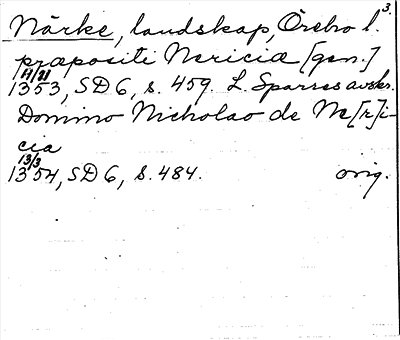 3.
Närke, landskap, Örebro l.
præpositi Nericiæ [gen.]
11/21
1353, SD 6, s. 459. L. Sparres avskr.
Domino Nicholao de Ne[r]i-
cia
13/3
1354, SD 6, s. 484. orig.